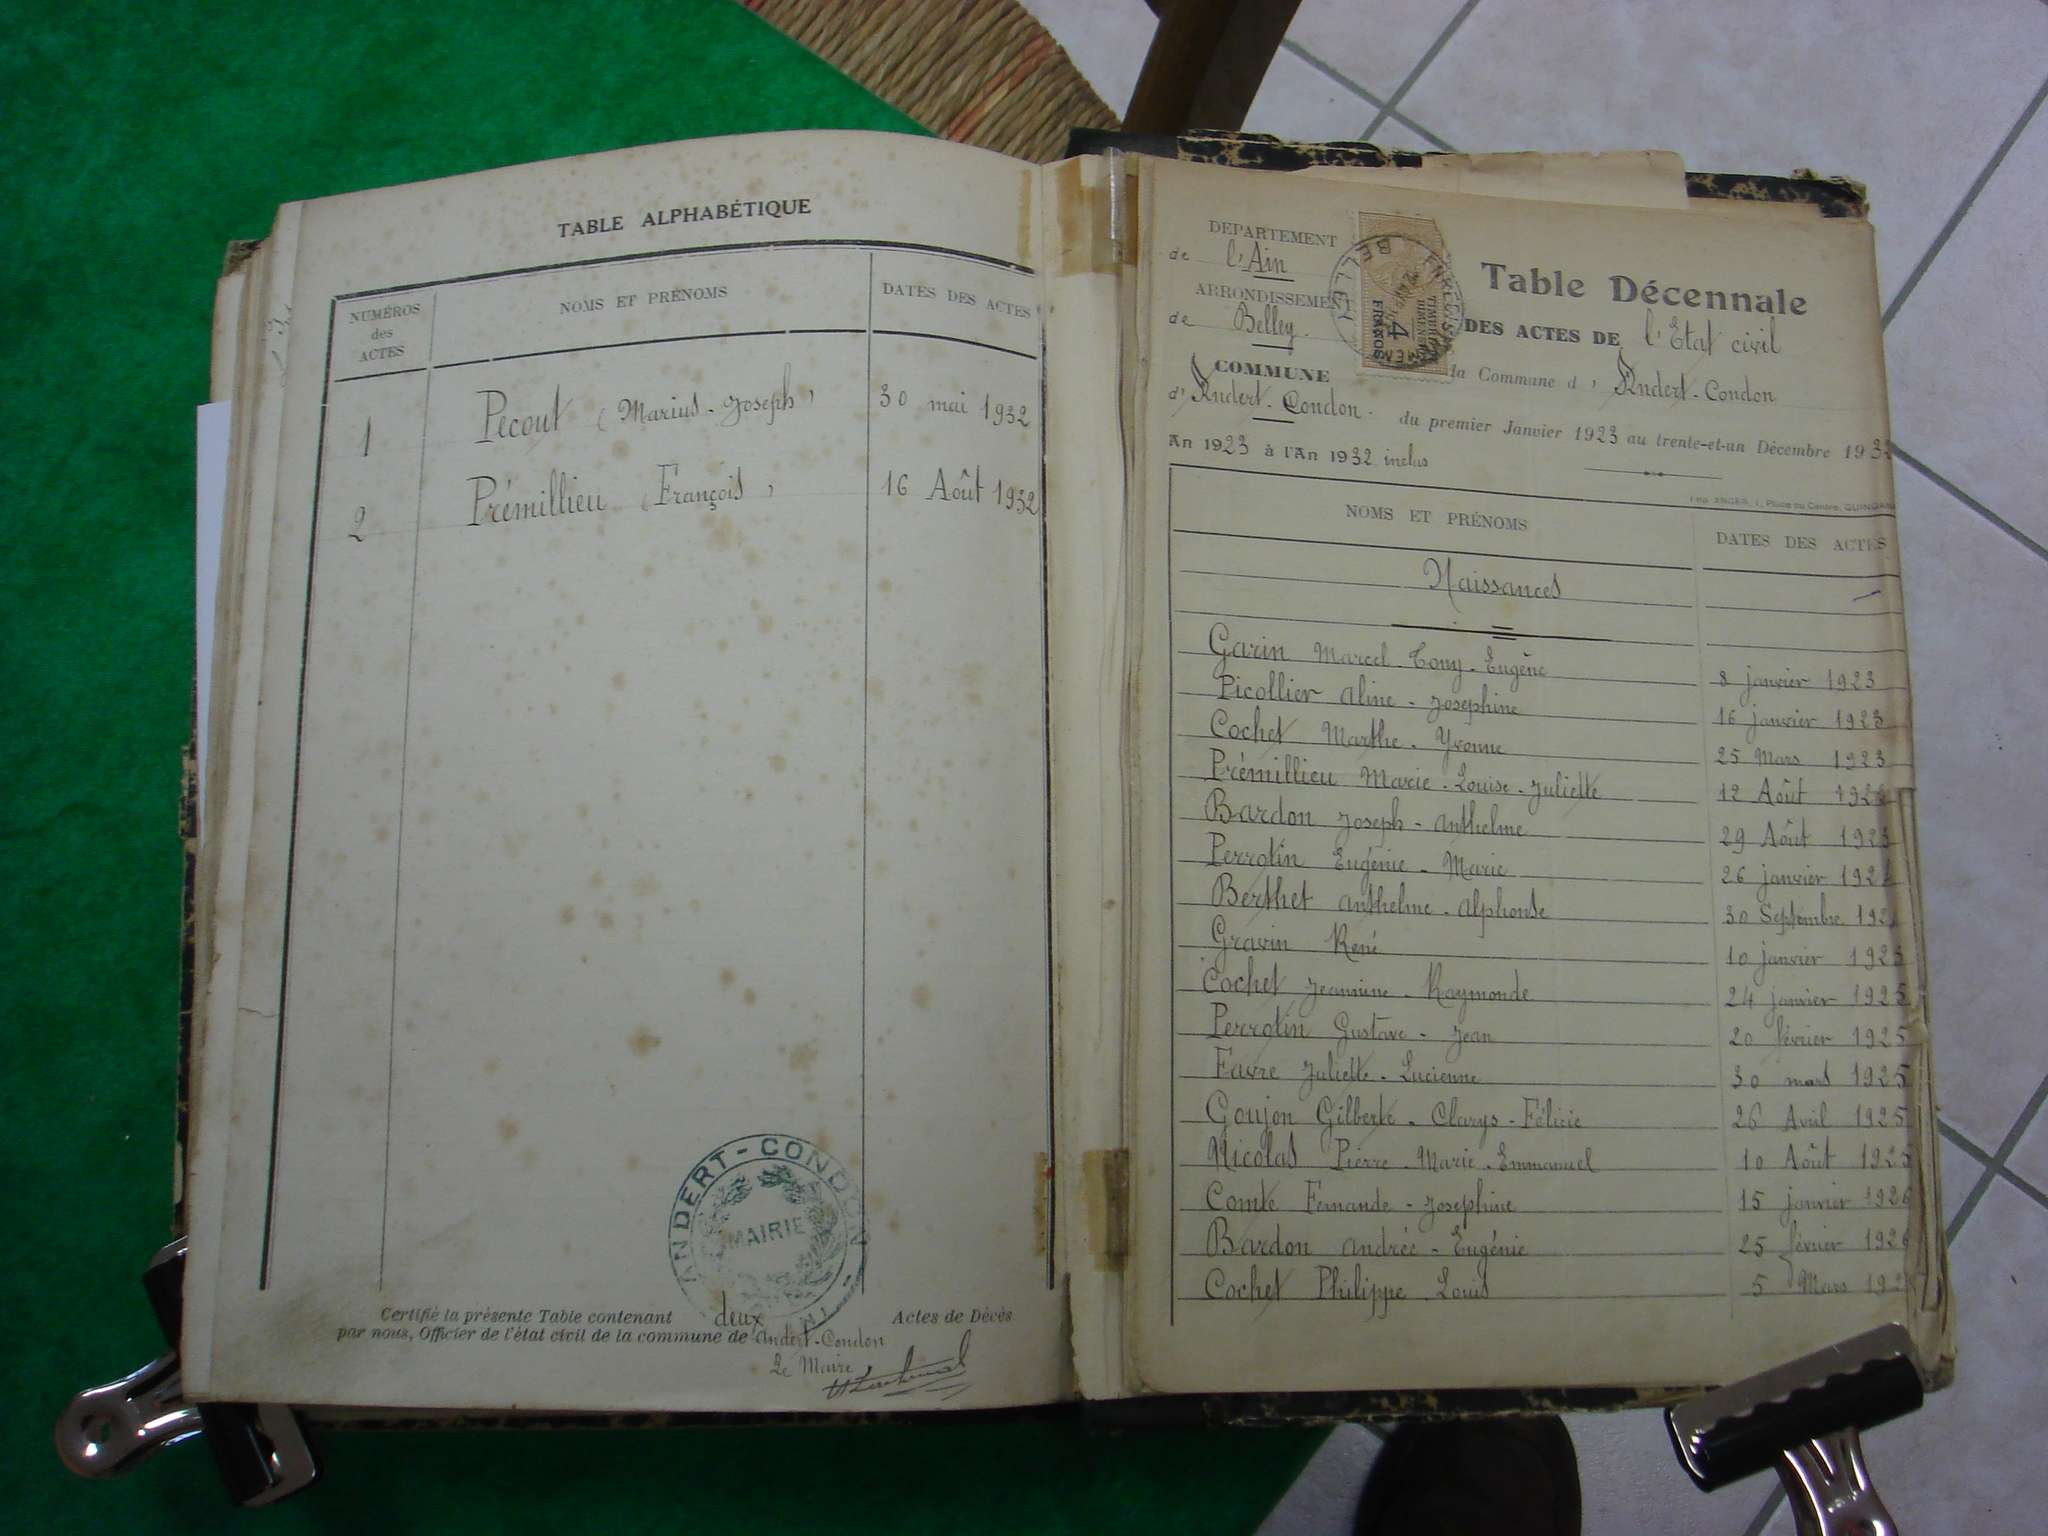 TABLE ALPHABÉTIQUE
NUMÉROS des ACTES
NOMS ET PRÉNOMS
DATES DES ACTES
1 Pecout (Marius-Joseph) 30 mai 1932
2 Prémillieu (François) 16 Août 1932
ANDERT-CONDON
MAIRIE
Certifié la présente Table contenant deux Actes de Décès
par nous, Officier de l'état civil de la commune de Andert-Condon
Le Maire
DEPARTEMENT
de l'Ain
ARRONDISSEMENT
de Belley
COMMUNE
d'Andert-Condon
An 1923 à l'An 1932 inclus
BELLEY
4 FRANCS
Table Décennale
DES ACTES DE l'Etat civil
la Commune d'Andert-Condon
du premier Janvier 1923 au trente-et-un Décembre 1932
NOMS ET PRÉNOMS
DATES DES ACTES
Naissances
Garin Marcel-Tony-Eugène 8 janvier 1923
Picollier Aline-Josephine 16 janvier 1923
Cochet Marthe-Yvonne 25 Mars 1923
Prémillieu Marie-Louise-Juliette 12 Août 192
Bardon Joseph-Anthelme 29 Août 1923
Perrotin Eugénie-Marie 26 janvier 192
Berthet Anthelme-Alphonse 30 Septembre 192
Gravin René 10 janvier 1925
Cochet Jeannine-Raymonde 24 janvier 1925
Perrotin Gustave-Jean 20 février 1925
Favre Juliette-Lucienne 30 mars 1925
Goujon Gilberte-Clarys-Félicie 26 Avril 1925
Nicolas Pierre-Marie-Emmanuel 10 Août 1925
Comte Fernande-Josephine 15 janvier 1926
Bardon Andrée-Eugénie 25 février 1926
Cochet Philippe Louis 5 Mars 192